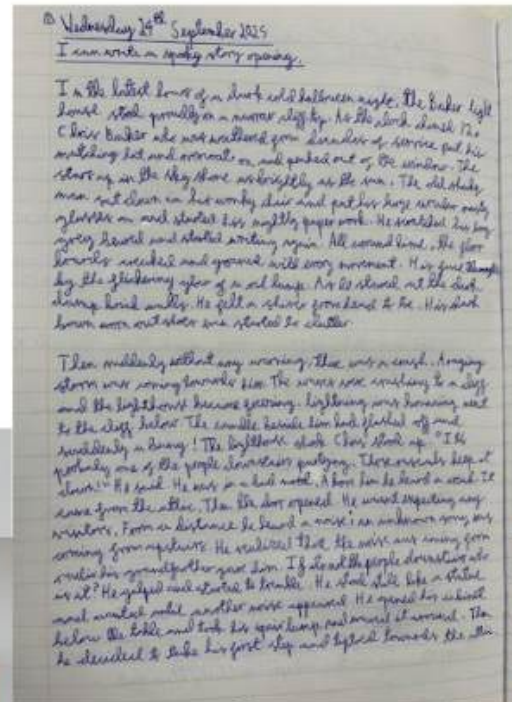 Wednesday 24th September 2025
I can write a spooky story opening.
In the latest hours of a dark cold halloween night, the Baker light
house stood proudly on a narrow cliff top. As the clock chimed 12.
Chris Barker who was weathered from decades of service put his
matching hat and on and peeked out of the window. The
stars up in the sky shone as brightly as the sun. The old shaky
man sat down on his wonky chair and put his large circular
glasses on and started his nightly paper work. He scratched his
grey beard and started writing again. All around him, the floor
boards creaked and groaned with every movement. His face
by the flickering glow of an oil lamp. As he stared at the dark
damp brick walls. He felt a shiver from head to toe. His dark
brown worn out shoes started to clatter.
Then suddenly without any warning, there was a crash. A raging
storm was coming towards him. The waves were crashing to a cliff
and the lighthouse became lightning was next
to the cliff below. The candle beside him had flashed off and
suddenly a bang! The lighthouse shook Chris stood up. "Its
probably one of the people downstairs Those rascals keep it
down!" He said. He was in a bad mood. Above him he heard a sound. It
came from the attic. Then the door opened. He wasnt expecting any
visitors. From a distance he heard a noise: an unknown song was
coming from upstairs. He realized that the noise was coming from
radio his grandfather gave him. If its not the people downstairs who
is it? He gulped and started to tremble. He stood still like a statue
and waited until another noise appeared. He opened his cabinet
below the table and took his spare lamp and moved it around. Then
he decided to take his first step and tiptoed towards the